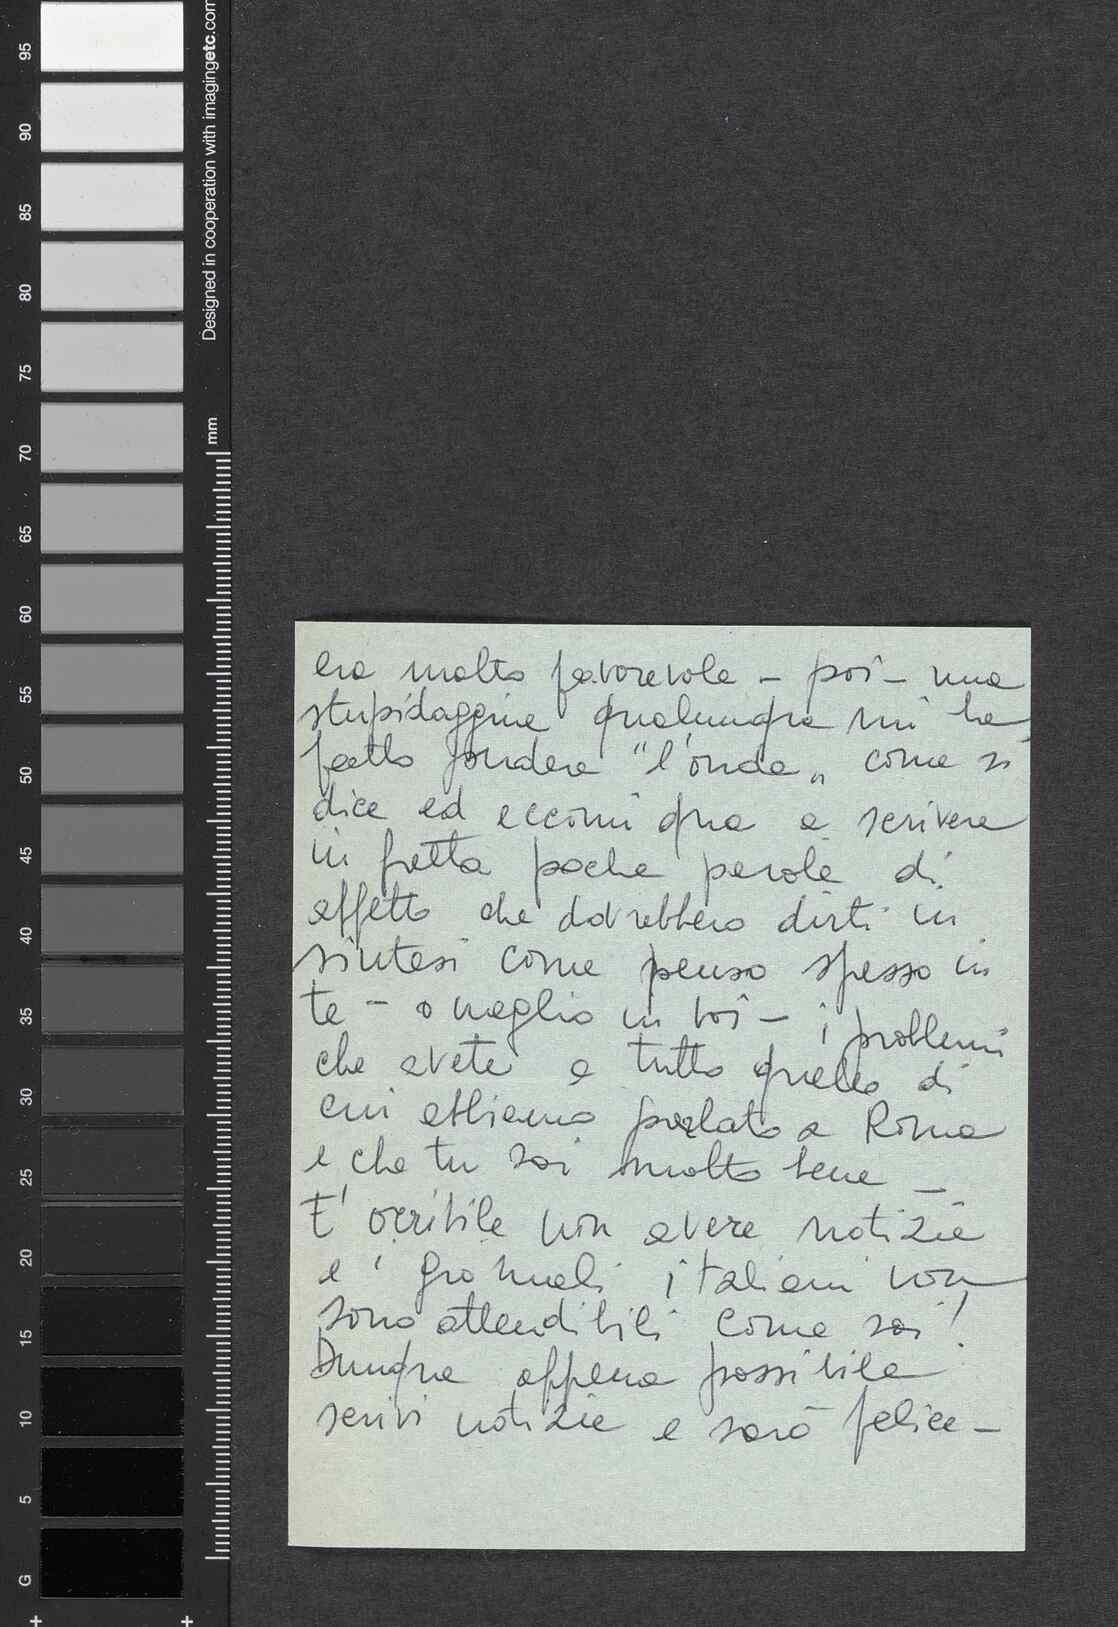 95
90
85
80
75
70
65
60
55
50
45
40
35
30
25
20
15
10
5
G
Designed in cooperation with imagingetc.com
mm
era molto favorevole – poi – una
stupidaggine qualunque mi ha
fatto perdere "l'onda„ come si
dice ed eccomi qua a scrivere
in fretta poche parole di
affetto che dovrebbero dirti in
sintesi come penso spesso in
te – o meglio in voi – i problemi
che avete e tutto quello di
cui abbiamo parlato a Roma
e che tu sai molto bene –
E' orribile non avere notizie
e i giornali italiani non
sono attendibili come sai!
Dunque appena possibile
scrivi notizie e sarò felice –